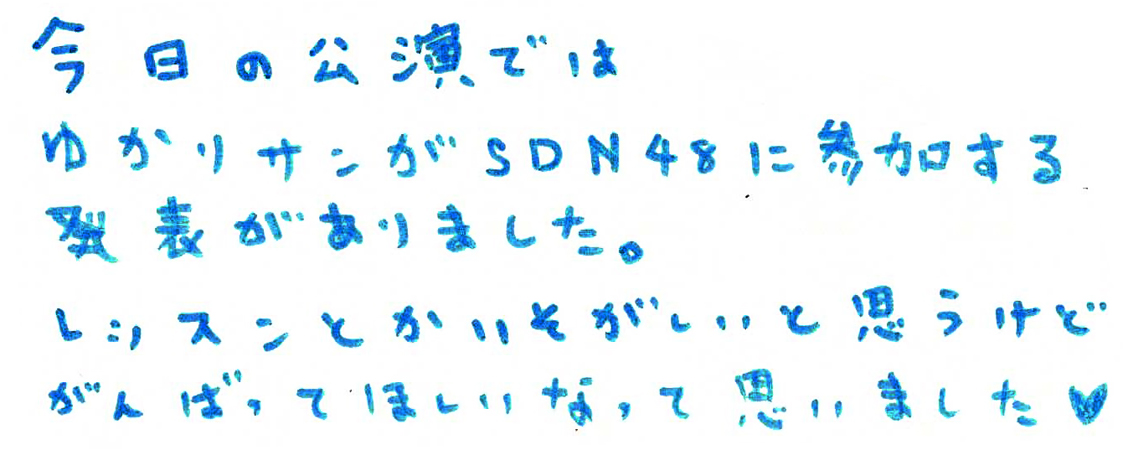 今日の公演では
ゆかりサンがSDN48に参加する
発表がありました。
レッスンとかいそがしいと思うけど
がんばってほしいなって思いました♥